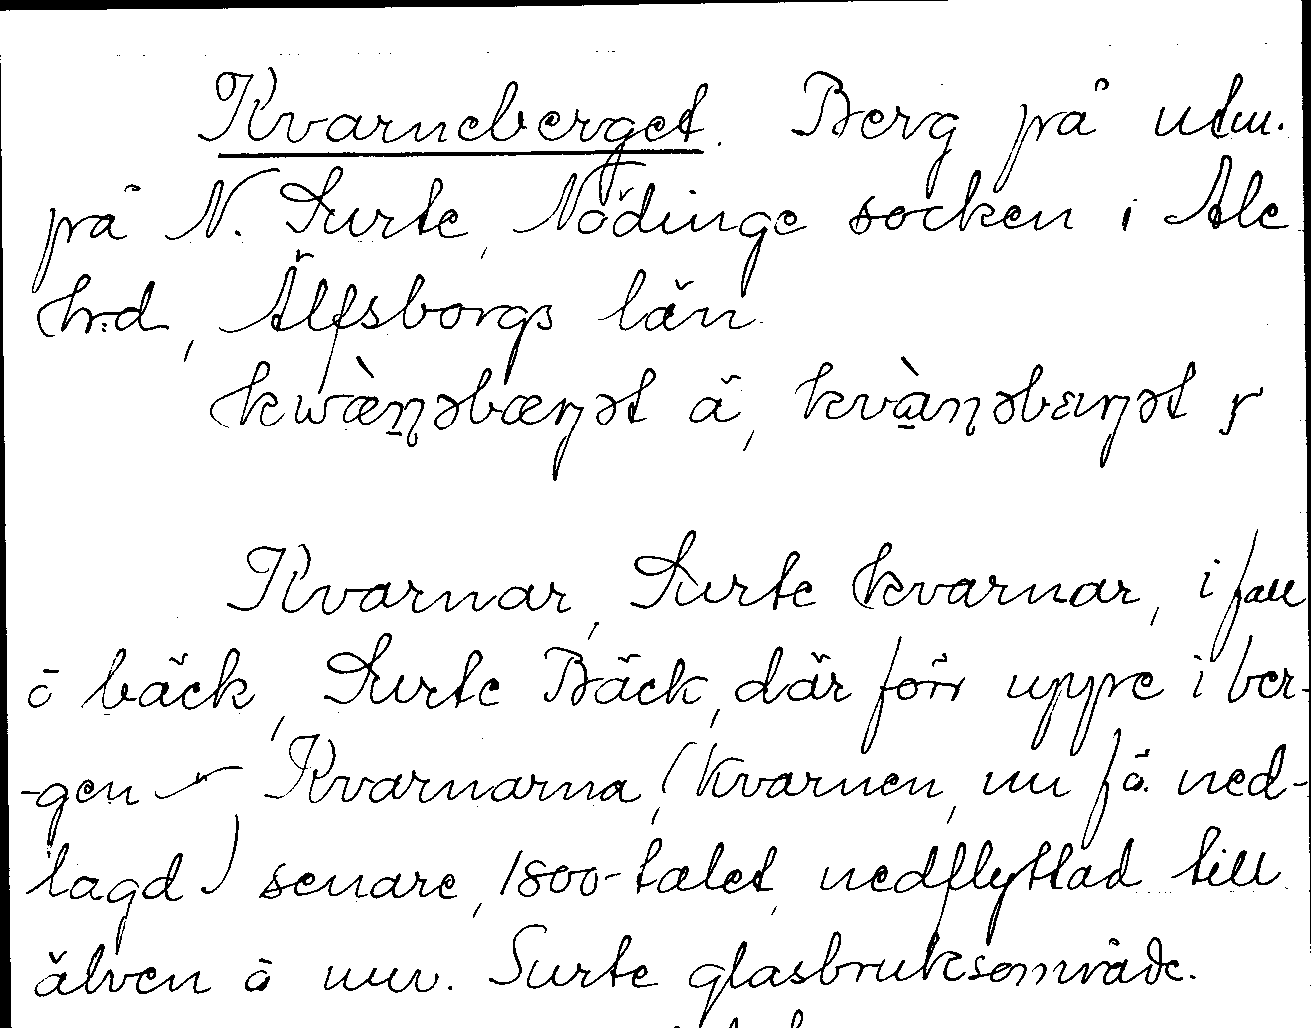 Kvarneberget. Berg på utm.
på N. Surte, Nödinge socken i Ale
hrd, Älfsborgs län.
kwæ̀n̠ɳəbæŋət å, kvàɳəbɛŋət ɼ
Kvarnar, Surte kvarnar, i fall
å bäck, Surte Bäck, där förr uppe i ber-
-gen Kvarnarna (kvarnen, nu få ned-
lagd) senare, 1800-talet, nedflyttad till
älven å nuv. Surte glasbruksområde.